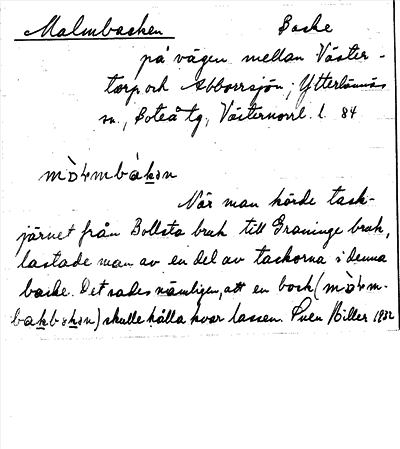 Malmbacken Backe
på vägen mellan Väster-
torp och Abborrsjön; Ytterlännäs
sn., Boteå tg, Västernorrl. l. 84
mò̀ɫmbàkən
När man körde tack-
järnet från Bollsta bruk till Graninge bruk,
lastade man av en del av tackorna i denna
backe. Det sades nämligen, att en bock (mò̀ɫm-
bakbokən) skulle hålla kvar lassen. Sven Biller 1932